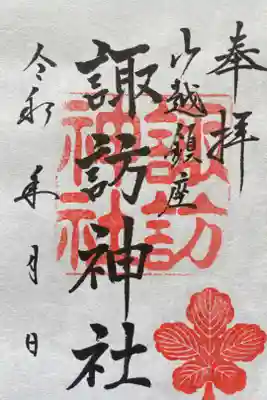 奉拝
山越鎮座
諏訪神社
令和 年 月 日
諏訪
神社